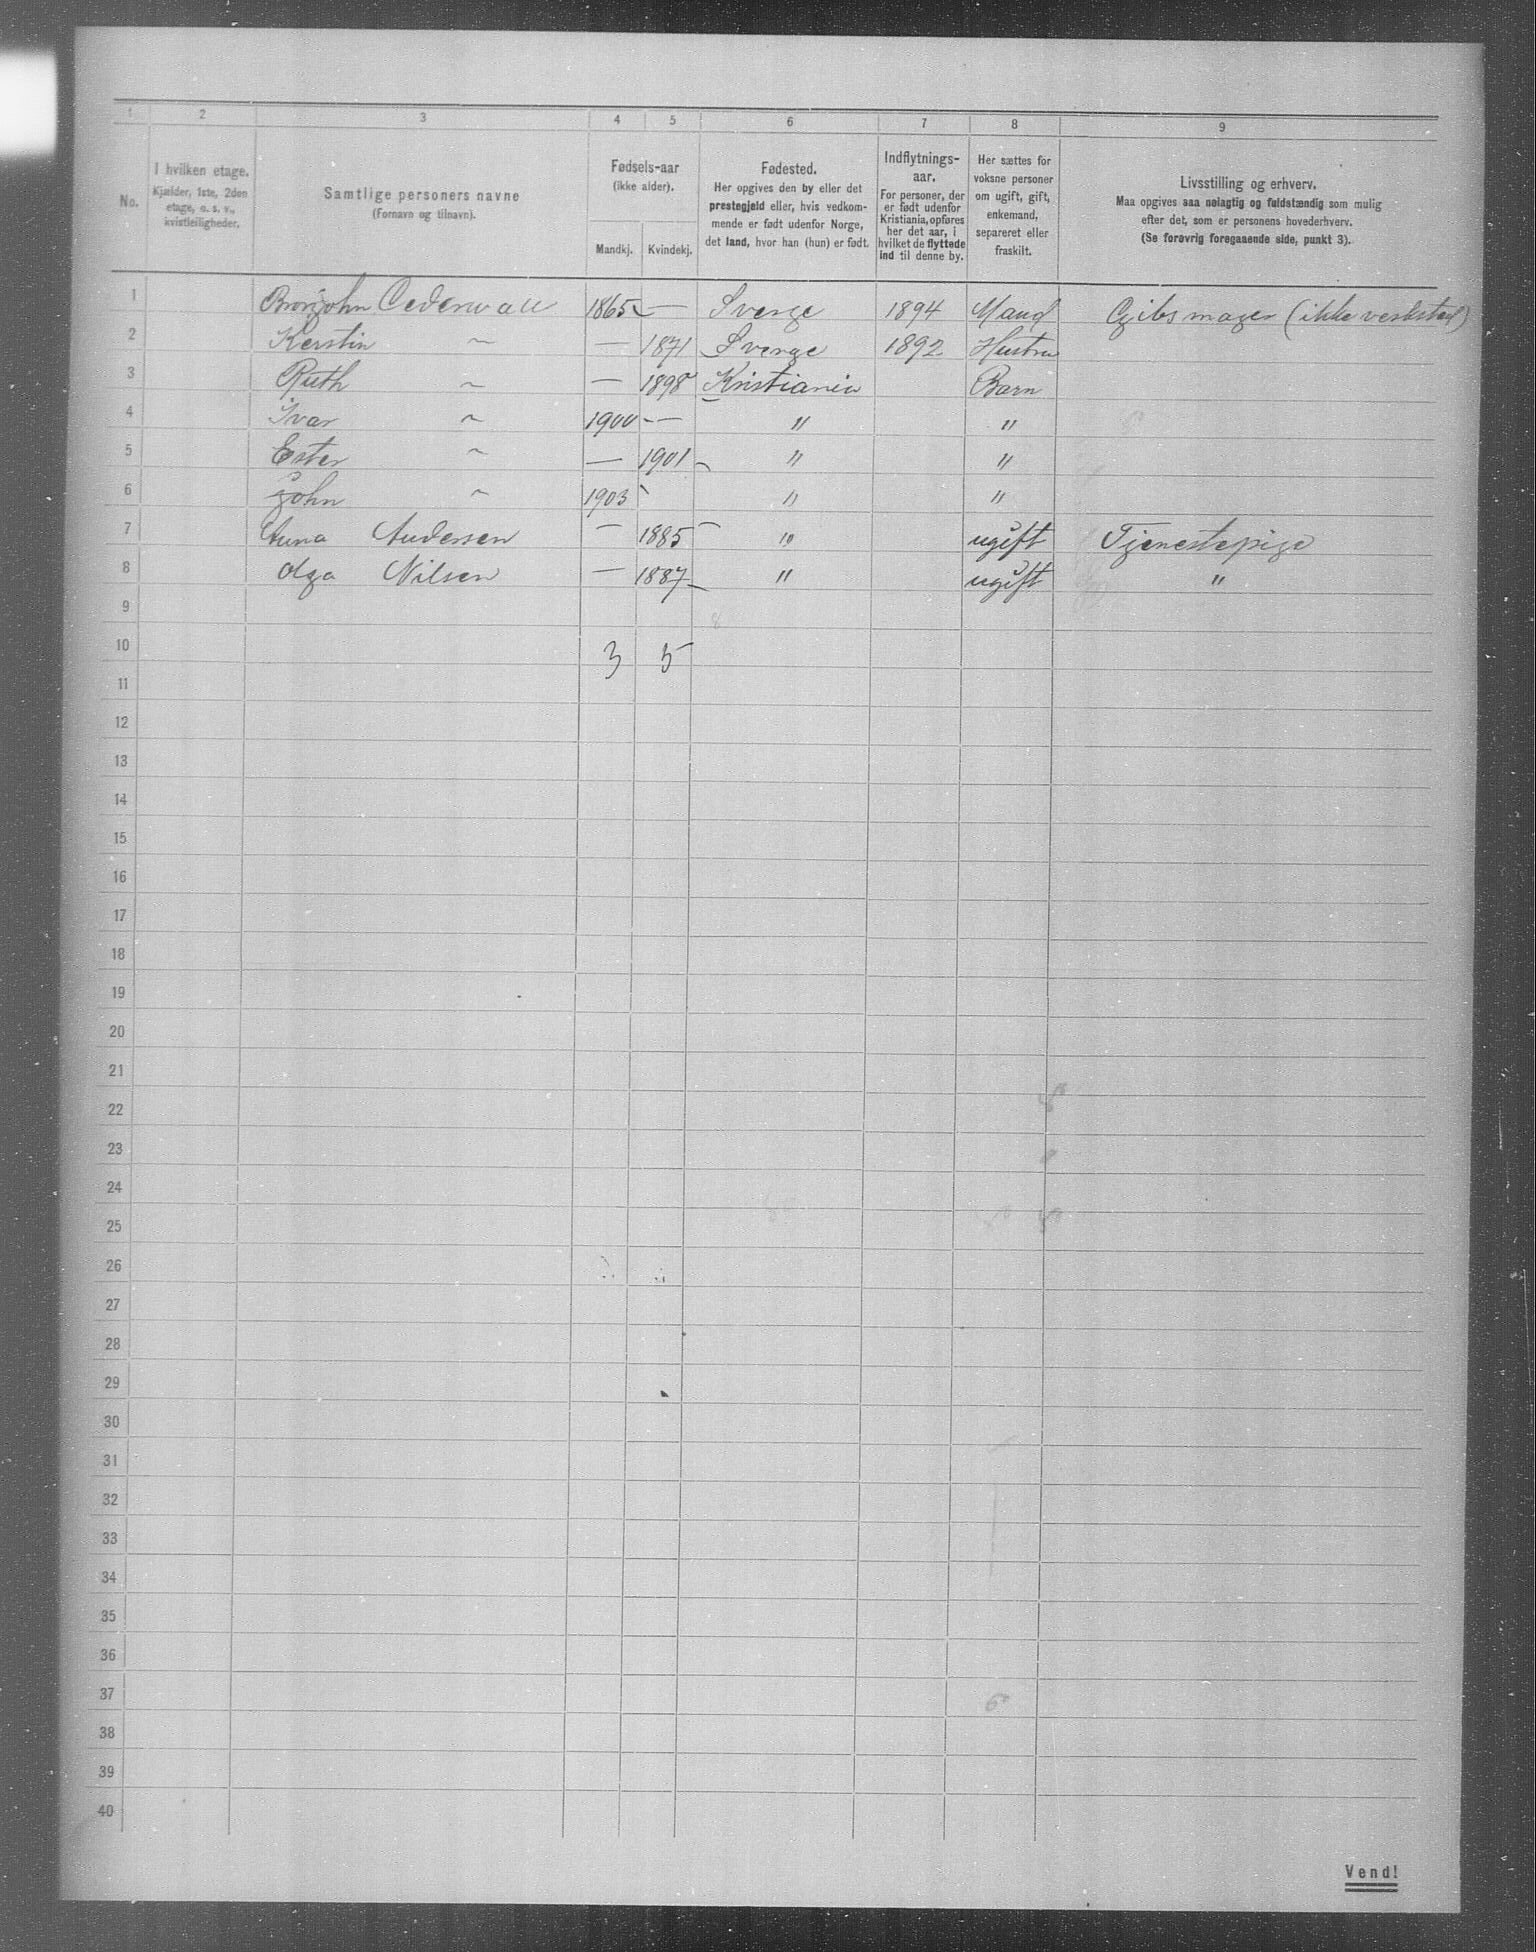 1 2 3 4 5 6 7 8 9
No.
I hvilken etage.
Kjælder, 1ste, 2den
etage, o. s. v.,
kvistleiligheder.
Samtlige personers navne
(Fornavn og tilnavn).
Fødsels-aar
(ikke alder).
Mandkj. Kvindekj.
Fødested.
Her opgives den by eller det
prestegjeld eller, hvis vedkom-
mende er født udenfor Norge,
det land, hvor han (hun) er født.
Indflytnings-
aar.
For personer, der
er født udenfor
Kristiania, opføres
her det aar, i
hvilket de flyttede
ind til denne by.
Her sættes for
voksne personer
om ugift, gift,
enkemand,
separeret eller
fraskilt.
Livsstilling og erhverv.
Maa opgives saa nøiagtig og fuldstændig som mulig
efter det, som er personens hovederhverv.
(Se forøvrig foregaaende side, punkt 3).
1 Brorjohn Cederwall 1865 — Sverge 1894 Mand Gibsmager (ikke verksted)
2 Kerstin ~ — 1871 Sverge 1892 Hustru
3 Ruth ~ — 1898 Kristiania Barn
4 Ivar ~ 1900 — " "
5 Ester ~ — 1901 " "
6 John ~ 1903 " "
7 Anna Andersen — 1885 " ugift Tjenestepige
8 Olga Nilsen — 1887 " ugift "
9
10 3 5
11
12
13
14
15
16
17
18
19
20
21
22
23
24
25
26
27
28
29
30
31
32
33
34
35
36
37
38
39
40
Vend!